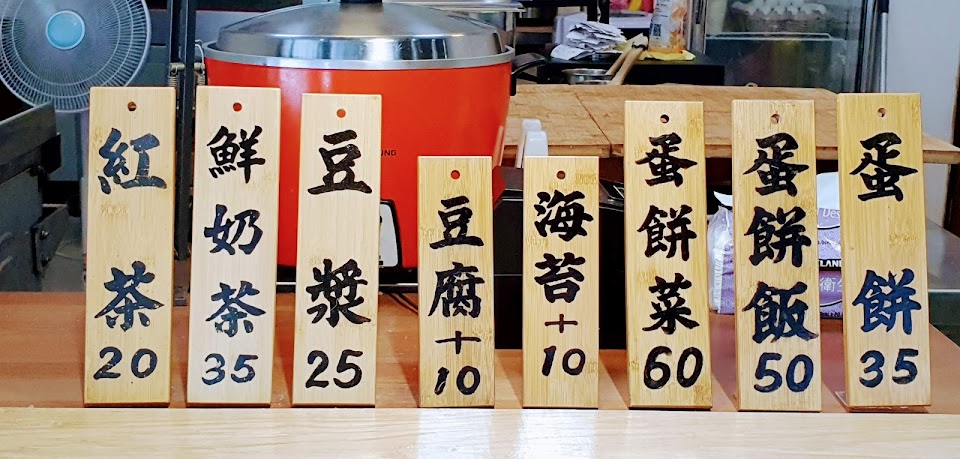 紅茶20
鮮奶茶35
豆漿25
豆腐+10
海苔+10
蛋餅菜60
蛋餅飯50
蛋餅35